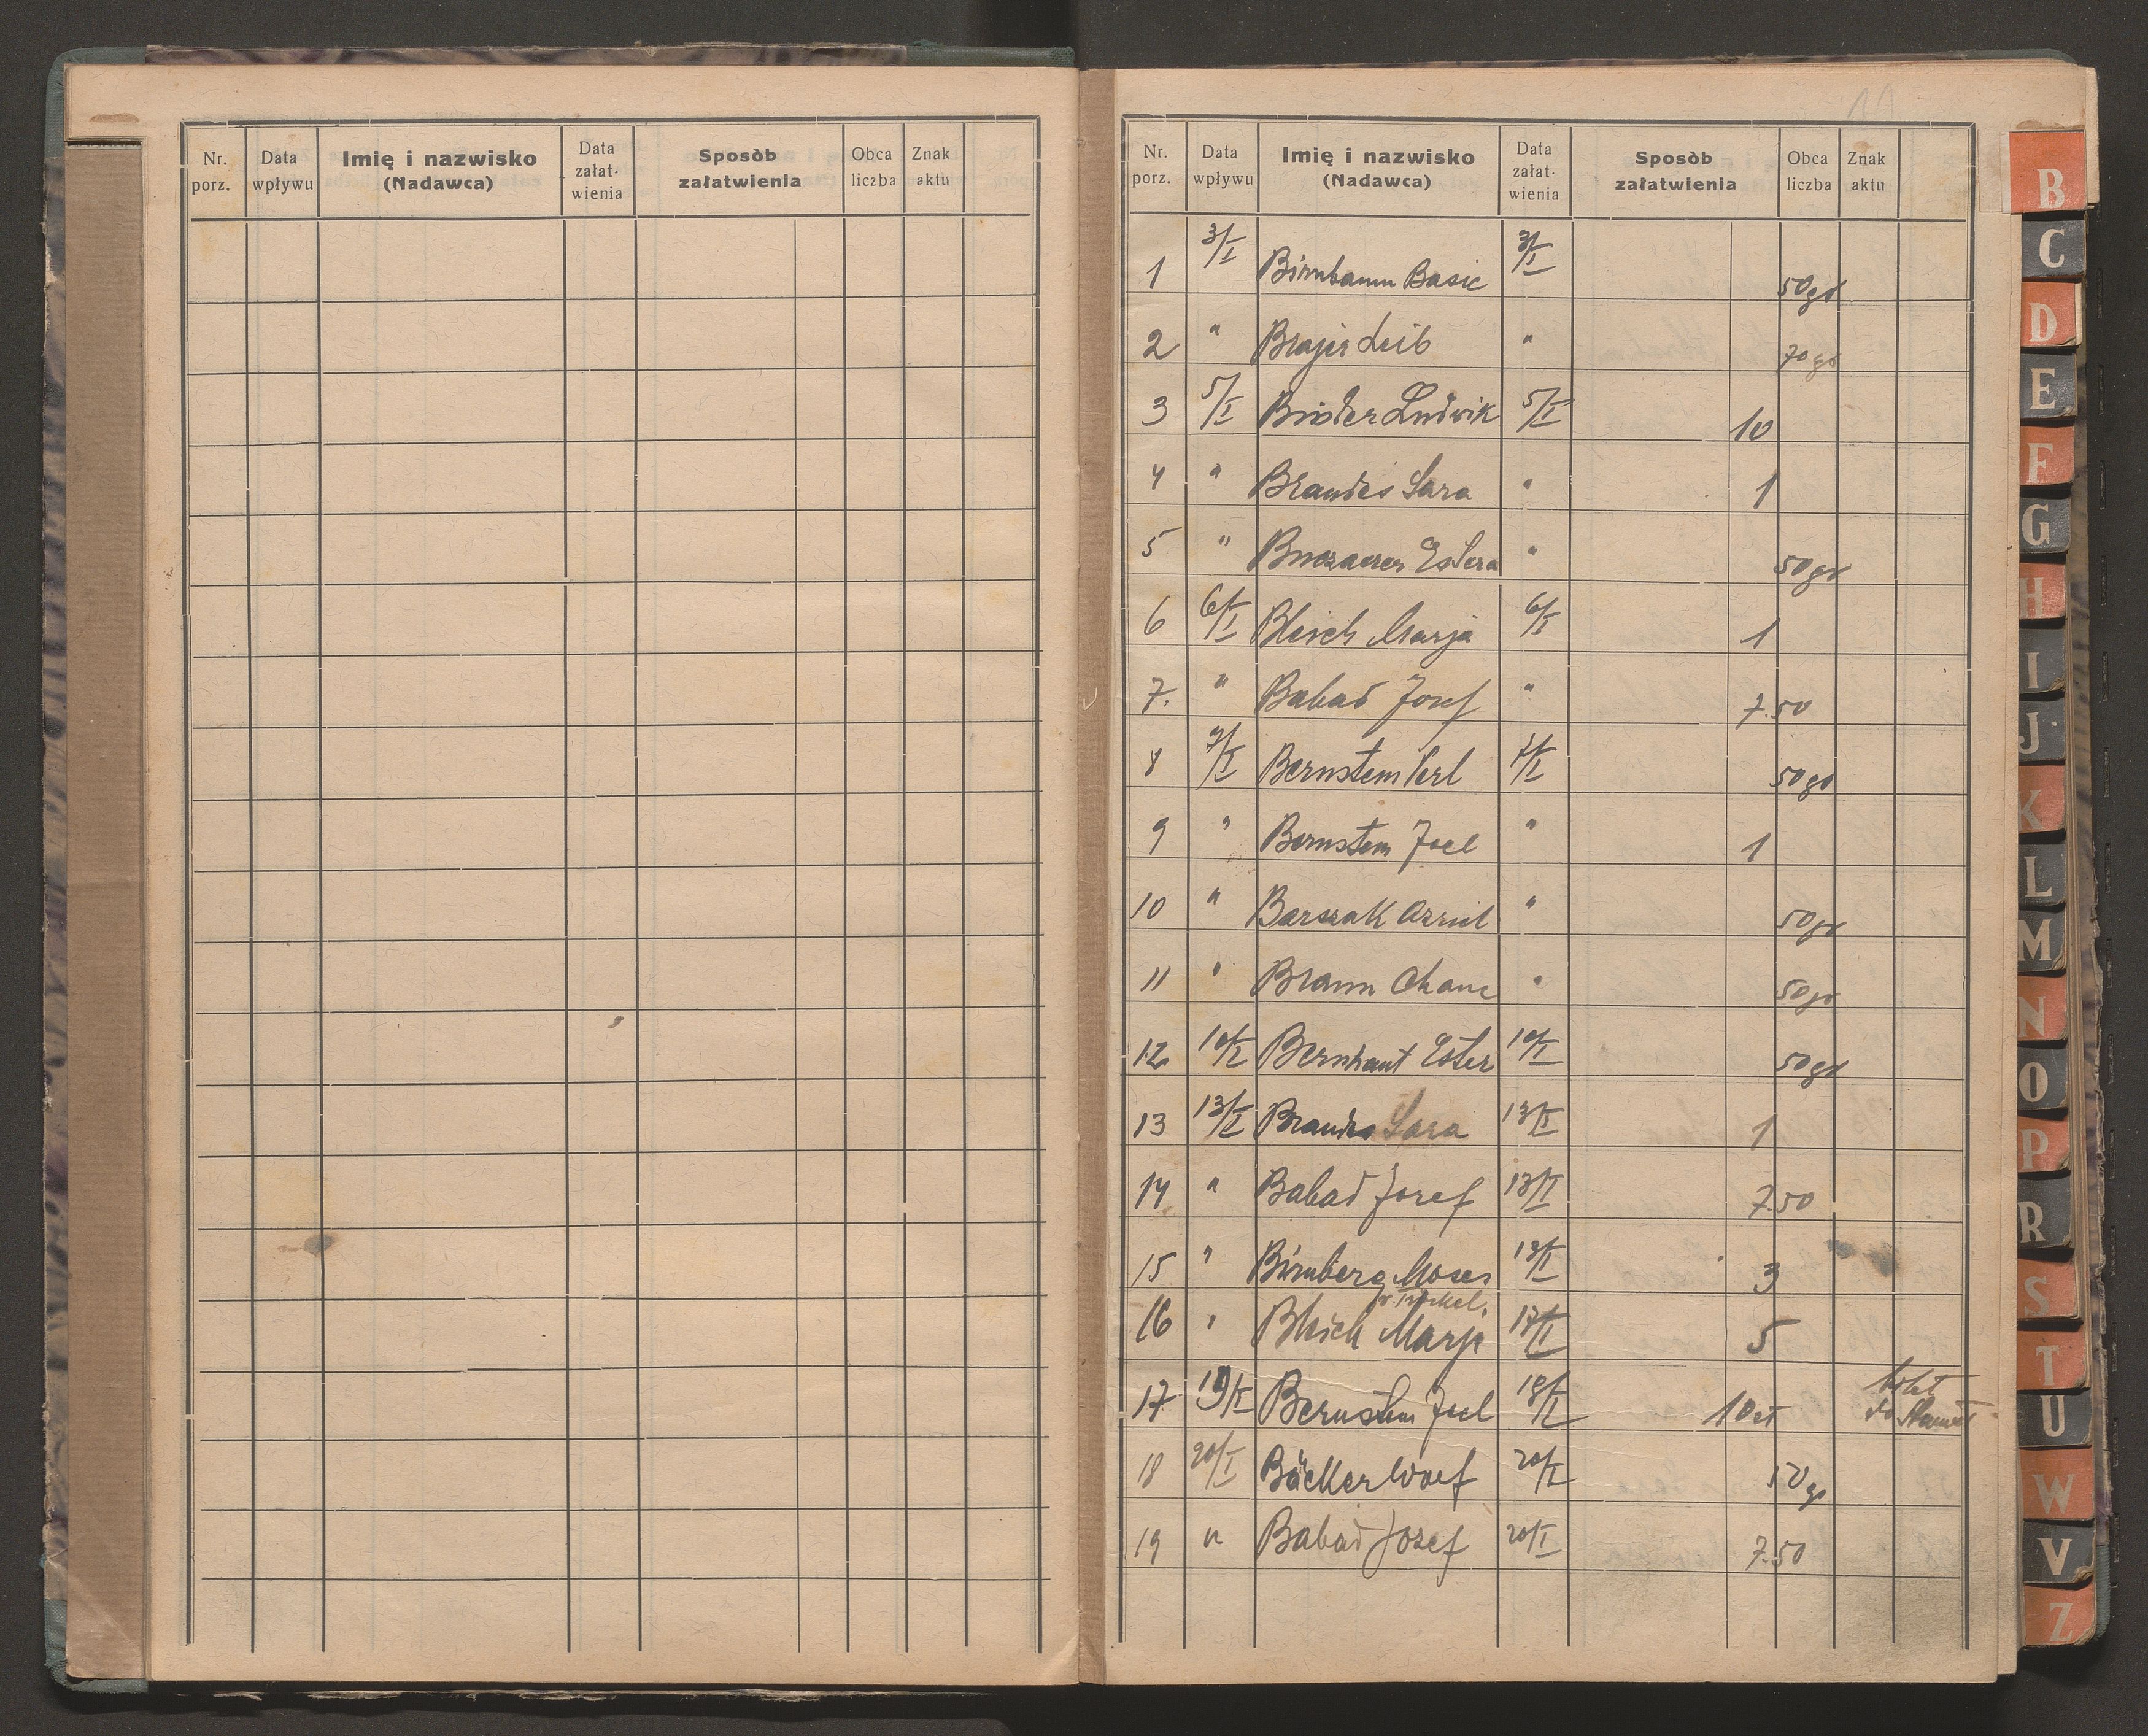 Nr. porz. Data wpływu Imię i nazwisko (Nadawca) Data załat- wienia Sposòb załatwienia Obca liczba Znak aktu
Nr. porz. Data wpływu Imię i nazwisko (Nadawca) Data załat- wienia Sposòb załatwienia Obca liczba Znak aktu
1 3/I Birnbaum Basie 3/I 50 gr
2 " Brajer Leib " 70 gr
3 5/I Binder Ludwik 5/I 10
4 " Brandes Sara " 1
5 " Buczaczer Estera " 50 gr
6 6/I Bleich Marja 6/I 1
7. " Babad Josef " 7.50
8 7/I Bernstein Perl 7/I 50 gr
9 " Bernstein Joel " 1
10 " Barszak Azriel " 50 gr
11 " Braun Chane " 50 gr
12 10/I Bernhaut Ester 10/I 50 gr
13 13/I Brandes Sara 13/I 1
14 " Babad Josef 13/I 7.50
15 " Birnberg Moses 13/I 3
16 " Bleich Marja 17/I 5
17 19/I Bernstein Joel 18/I 10 zł bilet do
18 20/I Bäcker Wolf 20/I 50 gr
19 " Babad Josef 20/I 7.50
B
C
D
E
F
G
H
I
J
K
L
M
N
O
P
R
S
T
U
W
V
Z